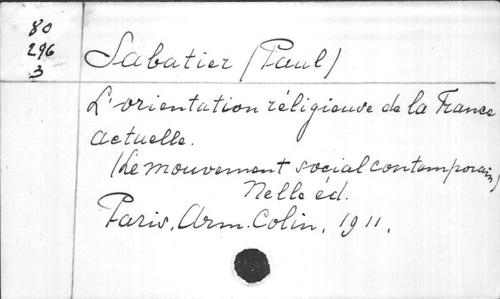 80
296
3
Sabatier (Paul)
L'orientation réligieuse de la France
actuelle.
(Le mouvement social contemporain)
Nelle éd.
Paris, Arm. Colin, 1911.